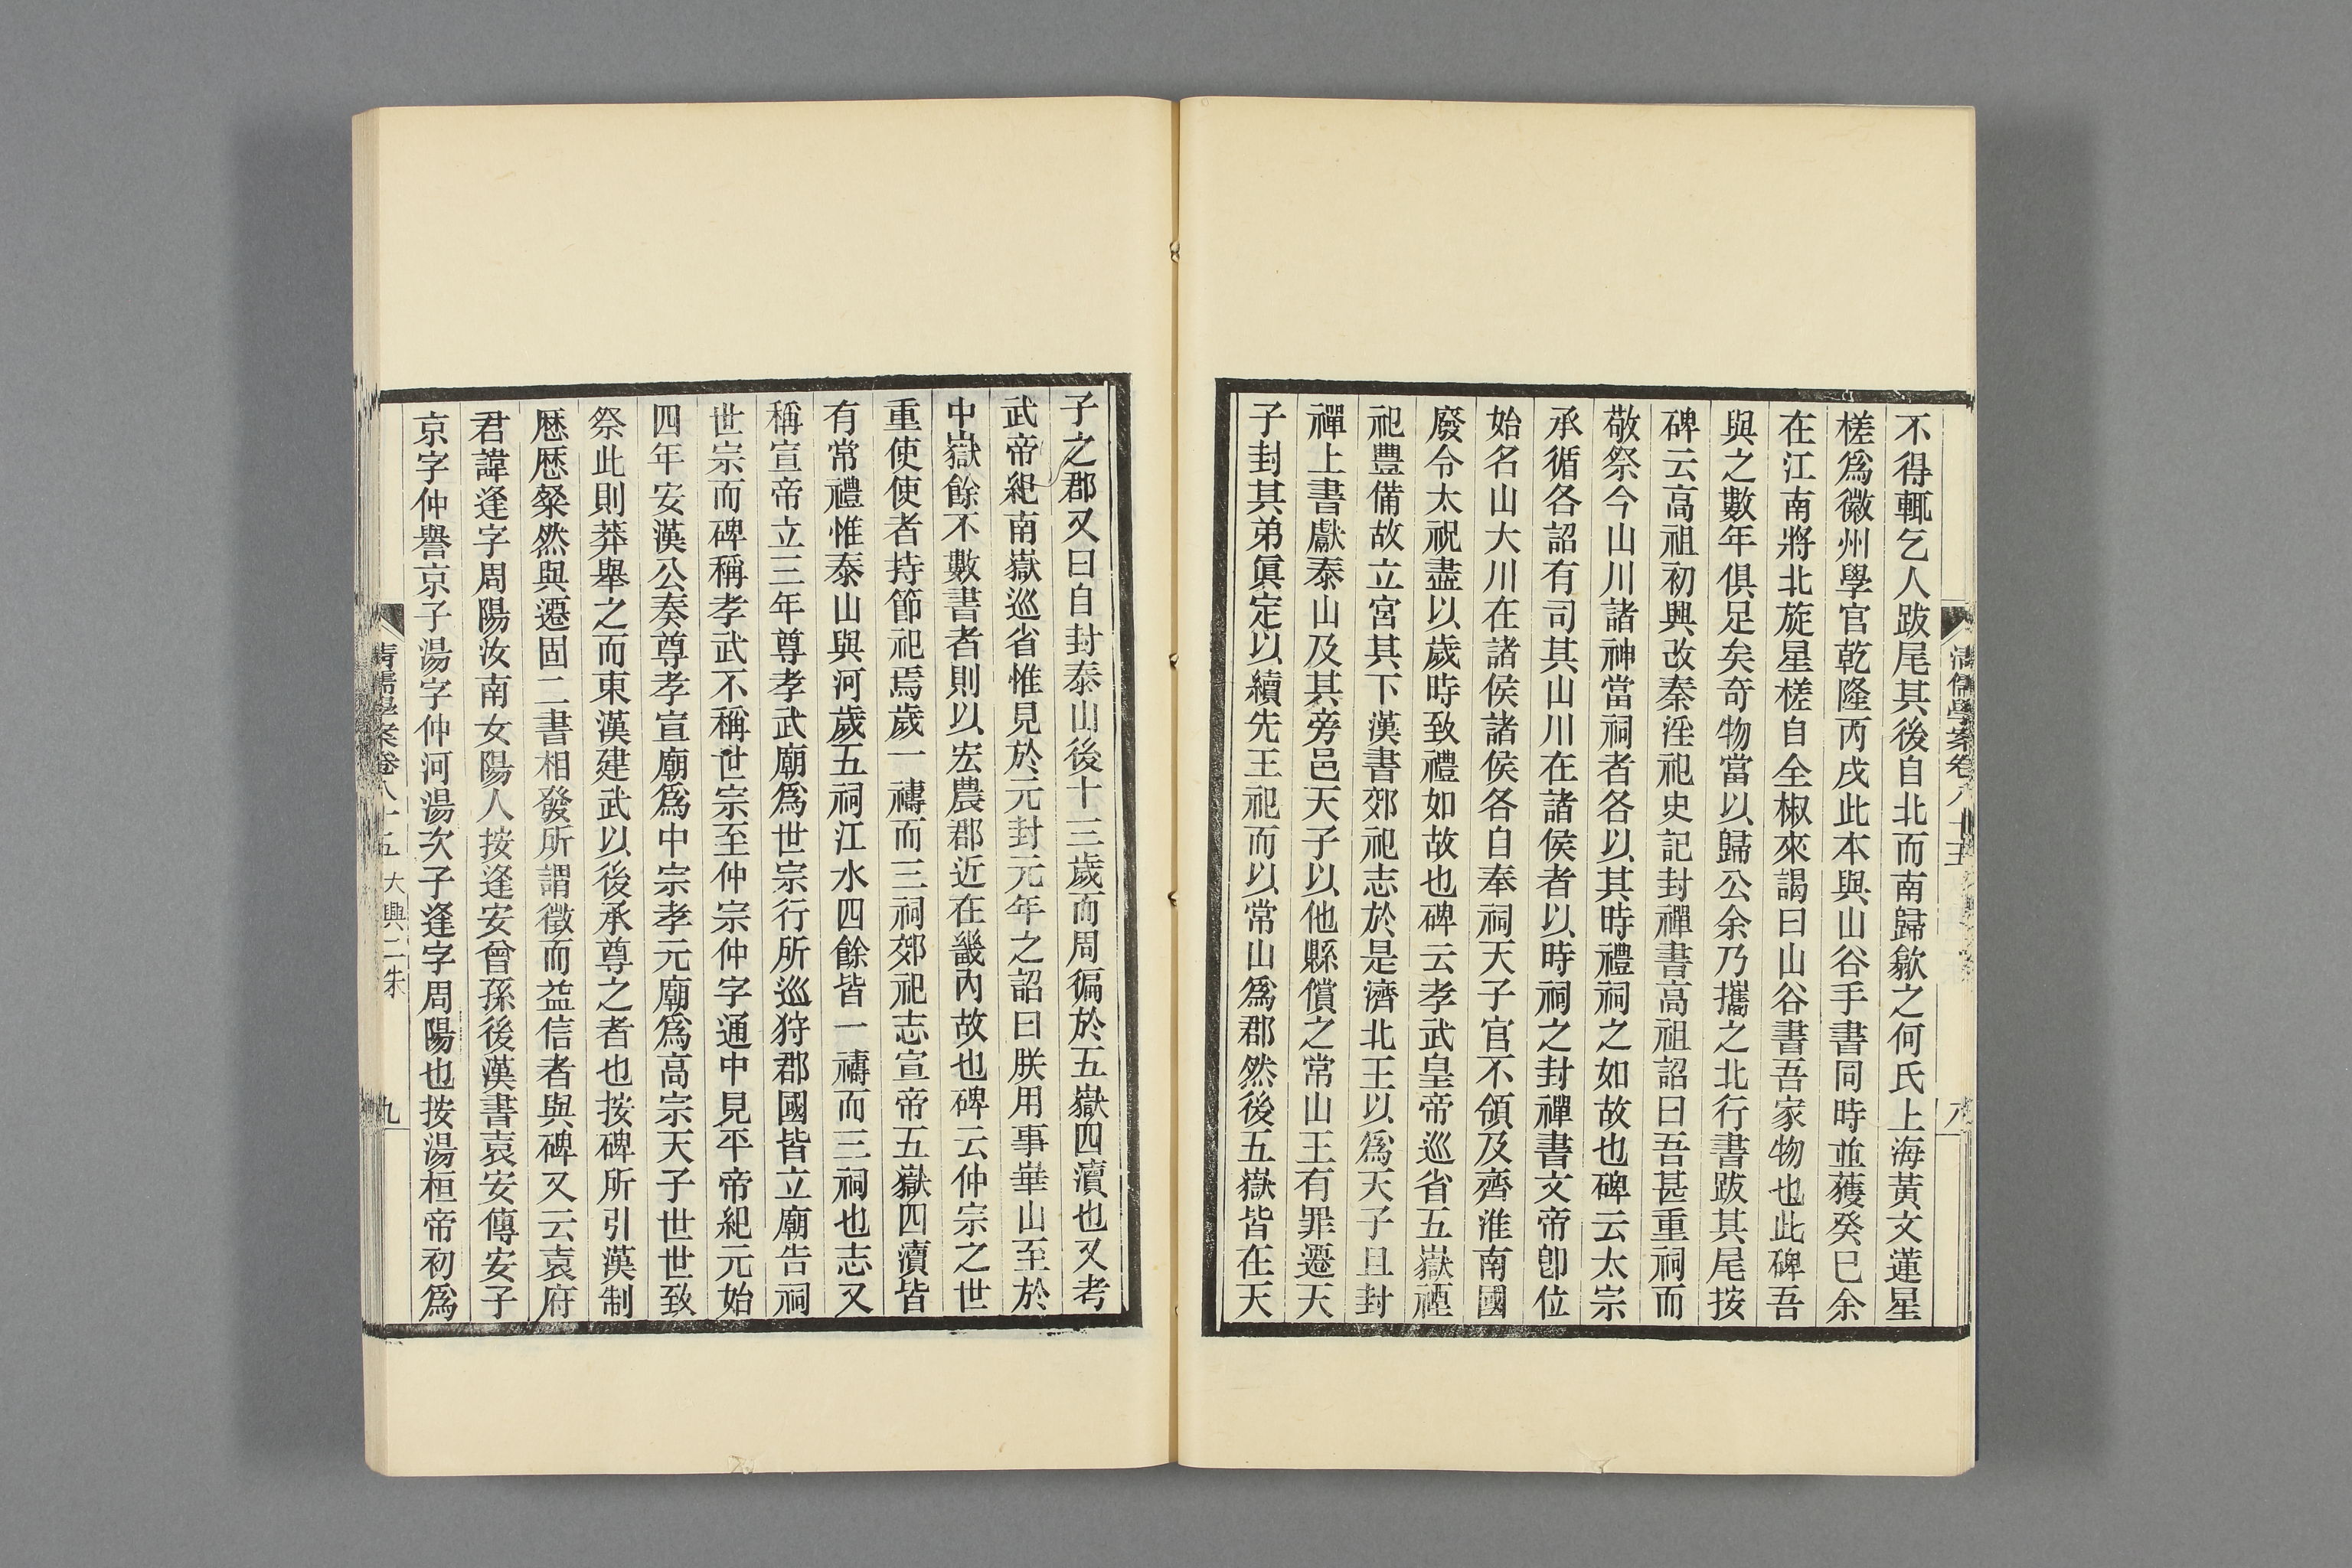 不得輒乞人跋尾其後自北而南歸歙之何氏上海黃文蓮星
槎爲徽州學官乾隆丙戌此本與山谷手書同時並獲癸巳余
在江南將北旋星槎自全椒來謁曰山谷書吾家物也此碑吾
與之數年俱足矣奇物當以歸公余乃攜之北行書跋其尾按
碑云高祖初興改秦淫祀史記封禪書高祖詔曰吾甚重祠而
敬祭今山川諸神當祠者各以其時禮祠之如故也碑云太宗
承循各詔有司其山川在諸侯者以時祠之封禪書文帝卽位
始名山大川在諸侯諸侯各自奉祠天子官不領及齊淮南國
廢令太祝盡以歲時致禮如故也碑云孝武皇帝巡省五嶽禋
祀豐備故立宮其下漢書郊祀志於是濟北王以爲天子且封
禪上書獻泰山及其旁邑天子以他縣償之常山王有罪遷天
子封其弟眞定以續先王祀而以常山爲郡然後五嶽皆在天
子之郡又曰自封泰山後十三歲而周徧於五嶽四瀆也又考
武帝紀南嶽巡省惟見於元封元年之詔曰朕用事華山至於
中嶽餘不數書者則以宏農郡近在畿內故也碑云仲宗之世
重使使者持節祀焉歲一禱而三祠郊祀志宣帝五嶽四瀆皆
有常禮惟泰山與河歲五祠江水四餘皆一禱而三祠也志又
稱宣帝立三年尊孝武廟爲世宗行所巡狩郡國皆立廟告祠
世宗而碑稱孝武不稱世宗至仲宗仲字通中見平帝紀元始
四年安漢公奏尊孝宣廟爲中宗孝元廟爲高宗天子世世致
祭此則莽舉之而東漢建武以後承尊之者也按碑所引漢制
歷歷粲然與遷固二書相發所謂徵而益信者與碑又云袁府
君諱逢字周陽汝南女陽人按逢安曾孫後漢書袁安傳安子
京字仲譽京子湯字仲河湯次子逢字周陽也按湯桓帝初爲
清儒學案卷八十五 大興二朱
九